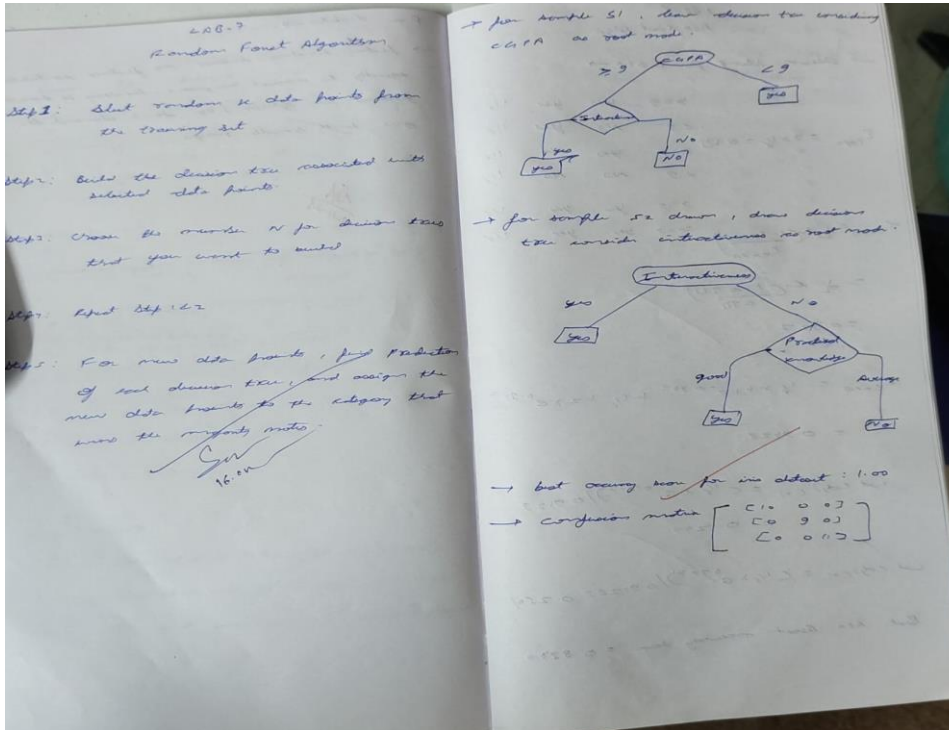 LAB-7
Random Forest Algorithm
Step 1: Select random K data points from
the training set
Step 2: Build the decision tree associated with
selected data points.
Step 3: Choose the number N for decision trees
that you want to build
Step 4: Repeat Step 1 & 2
Step 5: For new data points, find Prediction
of each decision tree, and assign the
new data points to the category that
wins the majority
16.
→ for sample S1, draw decision tree considering
CGPA as root node.
CGPA
≥ 9 < 9
yes
yes No
yes No
→ for sample S2 drawn, draw decision
tree consider interactiveness as root node.
Interactiveness
yes No
yes
Practical
knowledge
good Average
yes No
→ best accuracy score for iris dataset : 1.00
→ confusion matrix
[10 0 0]
[0 9 0]
[0 0 11]